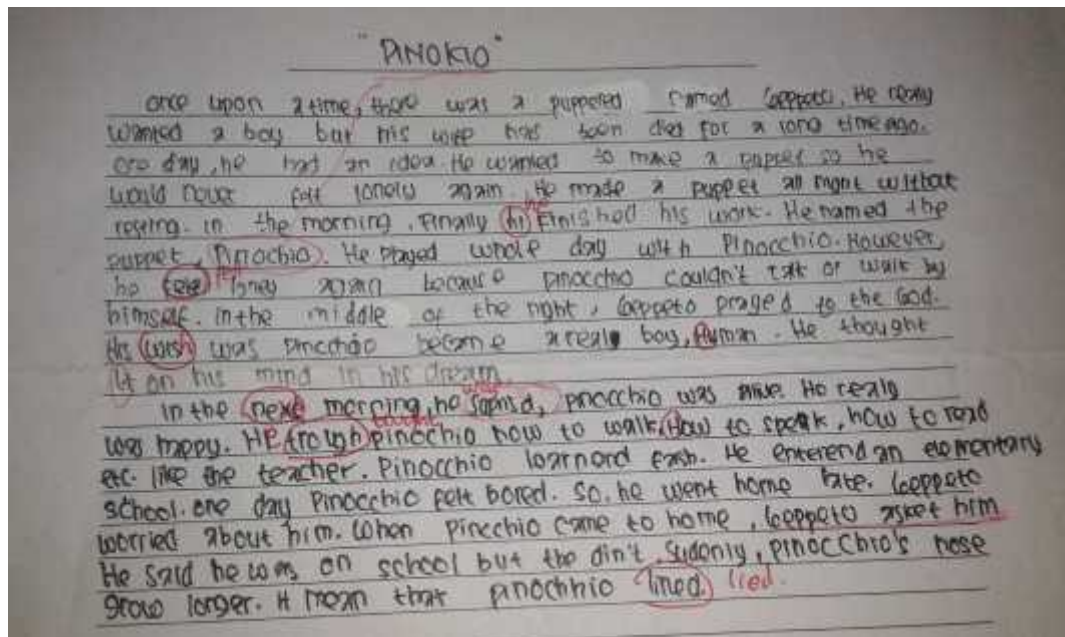 "PINOKIO"
once upon a time, there was a puppered named Geppeto. He realy
wanted a boy but his wife has been died for a long time ago.
one day, he had an idea. He wanted to make a puppet so he
would never felt lonely again. He made a puppet all night without
in the morning. Finally he Finished his work. He named the
puppet, Pinochio. He played whole day with Pinocchio. However,
he again because pinocchio couldn't talk or walk by
himself. In the middle of the night, Geppeto prayed to the God.
His wish was become a real boy, Human. He thought
it on his mind in his dream.
In the next morning, he pinocchio was alive. He realy
was happy. He trough pinochio how to walk, How to speak, how to read
etc. like the teacher. Pinocchio learnerd fash. He enterend an elementary
school. one day Pinocchio felt bored. So, he went home late. Geppeto
worried about him. When Pincchio came to home, Geppeto asket him
He said he was on school but the din't. Sudenly, pinocchio's nose
grow longer. It mean that lied.